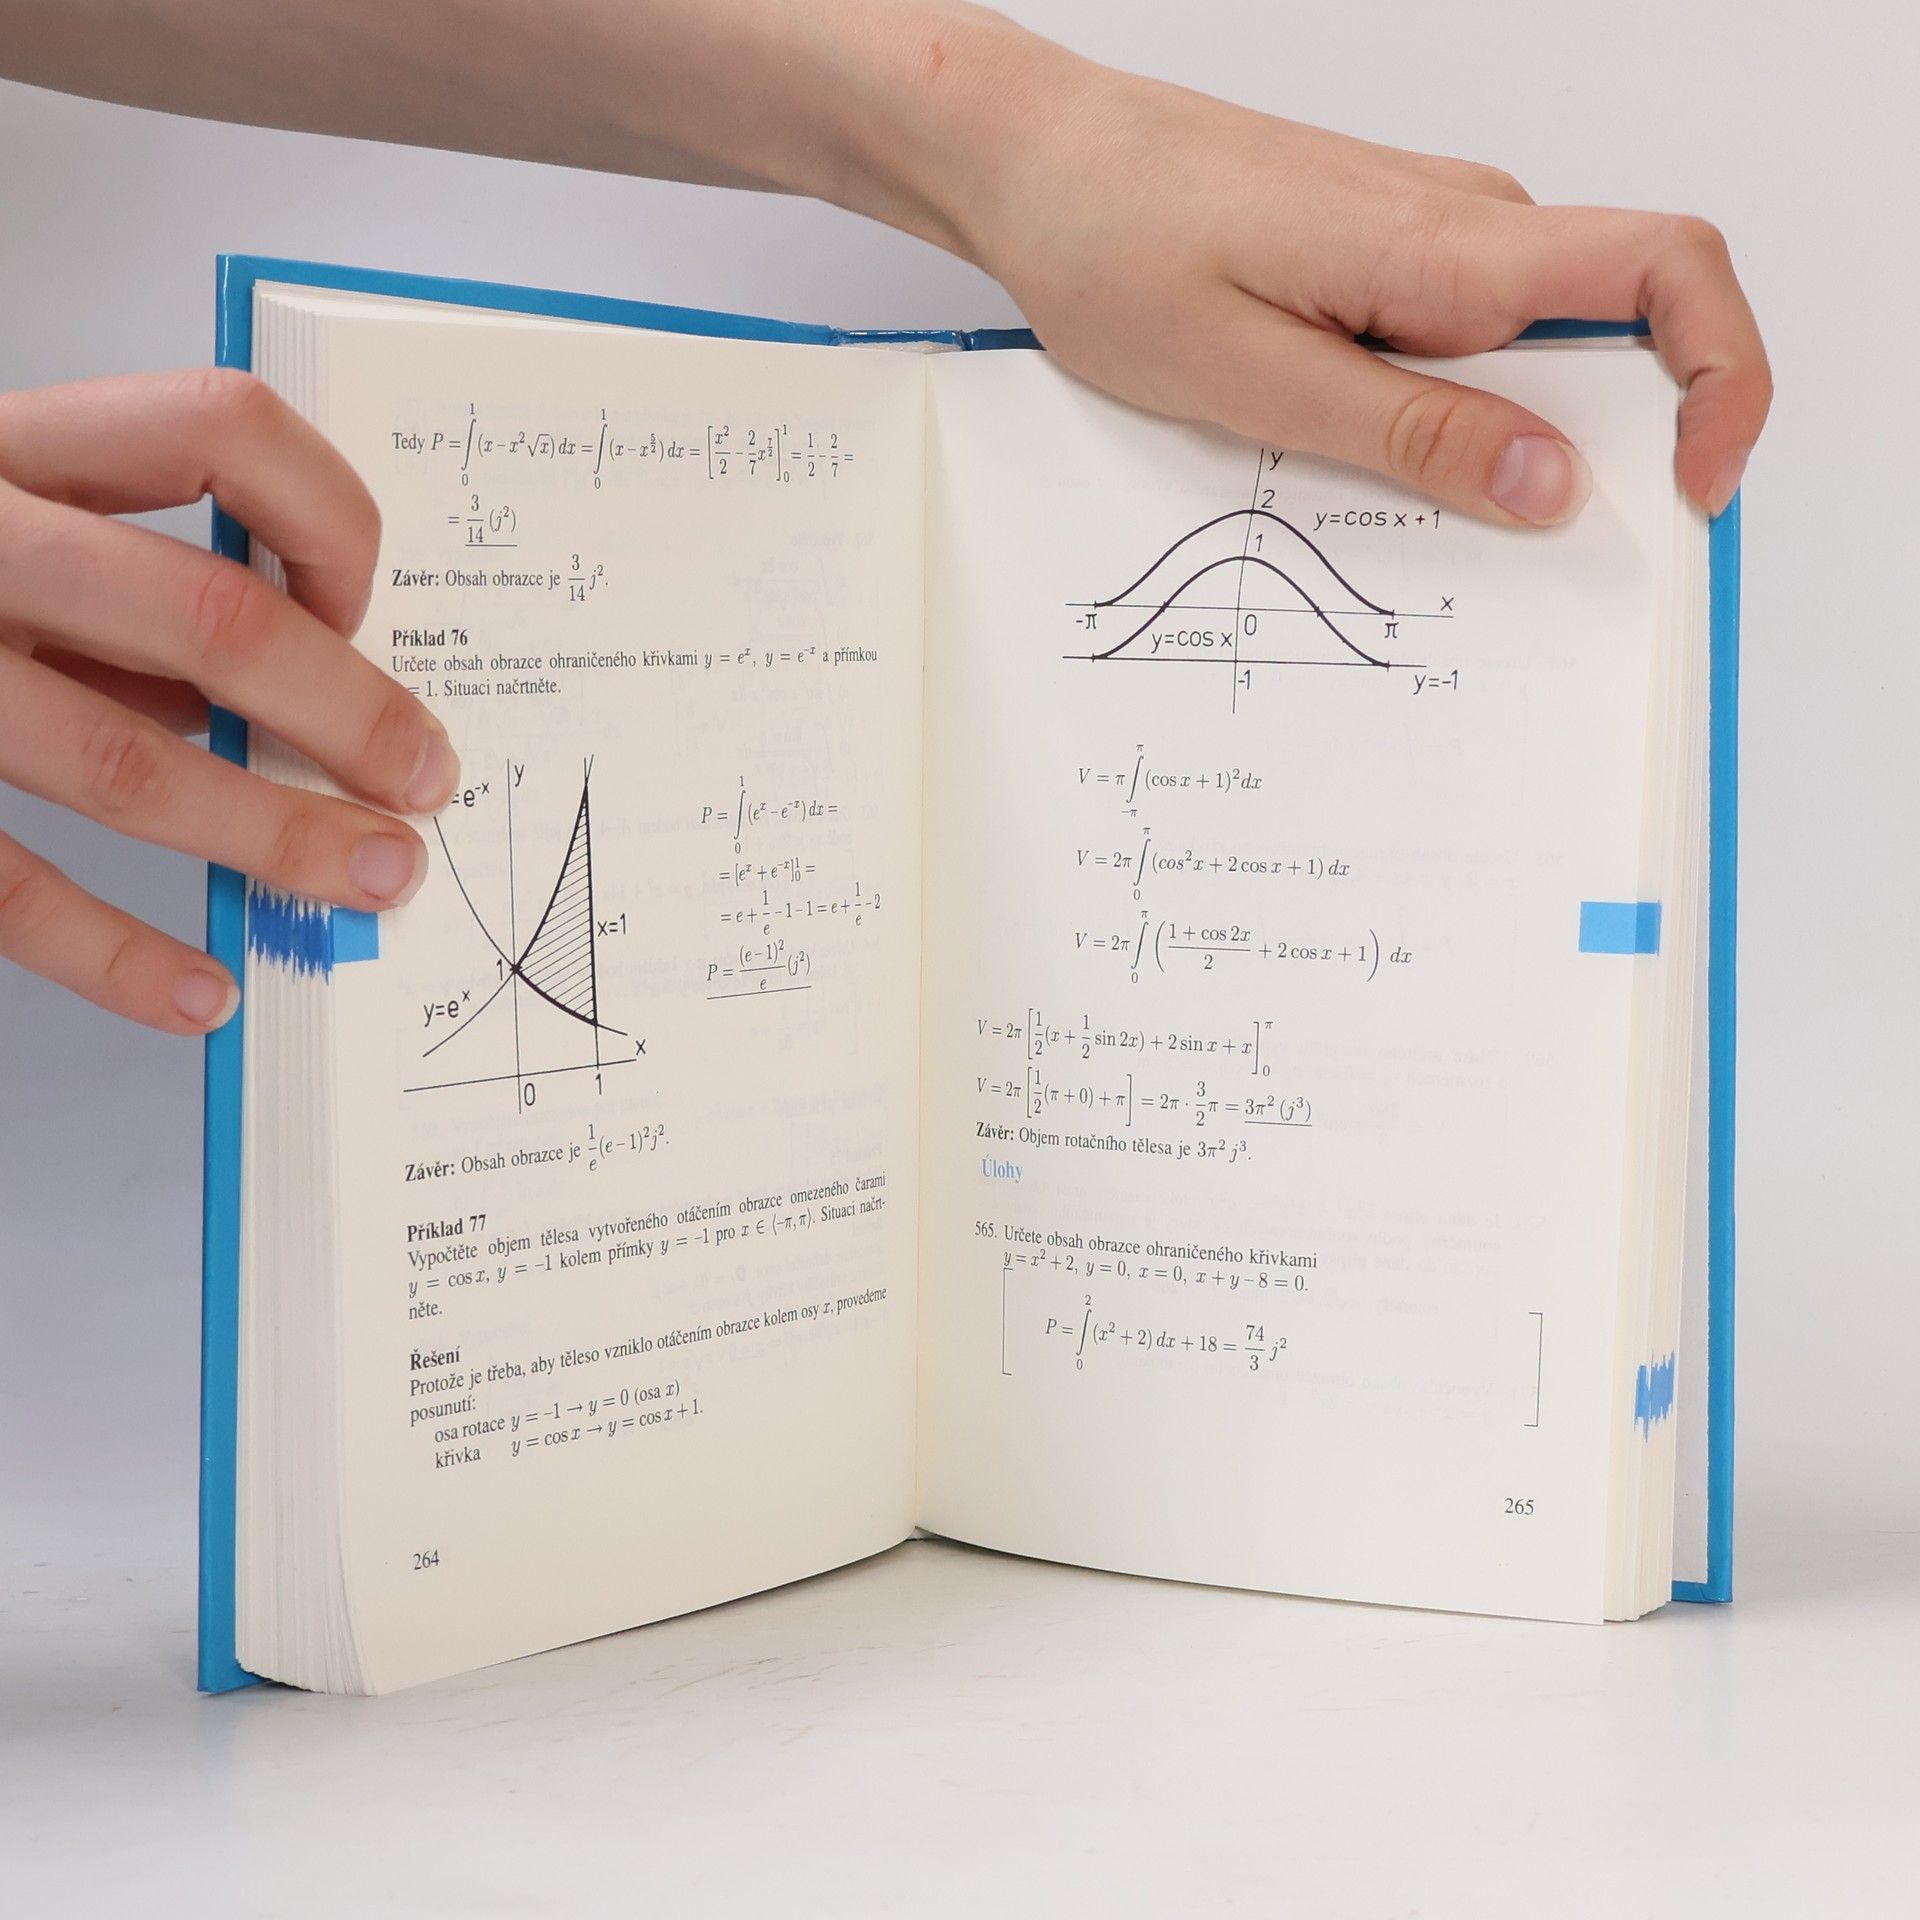 Tedy P = ∫₀¹ (x − x²√x) dx = ∫₀¹ (x − x^(5/2)) dx = [x²/2 − 2/7 x^(7/2)]₀¹ = 1/2 − 2/7 =
= 3/14 (j²)
Závěr: Obsah obrazce je 3/14 j².
Příklad 76
Určete obsah obrazce ohraničeného křivkami y = eˣ, y = e⁻ˣ a přímkou
= 1. Situaci načrtněte.
=e⁻ˣ
y
x=1
1
y=eˣ
x
0
1
P = ∫₀¹ (eˣ − e⁻ˣ) dx =
= [eˣ + e⁻ˣ]₀¹ =
= e + 1/e − 1 − 1 = e + 1/e − 2
P = (e−1)²/e (j²)
Závěr: Obsah obrazce je 1/e (e − 1)² j².
Příklad 77
Vypočtěte objem tělesa vytvořeného otáčením obrazce omezeného čarami
y = cos x, y = −1 kolem přímky y = −1 pro x ∈ ⟨−π, π⟩. Situaci načrt-
něte.
Řešení
Protože je třeba, aby těleso vzniklo otáčením obrazce kolem osy x, provedeme
posunutí:
osa rotace y = −1 → y = 0 (osa x)
křivka y = cos x → y = cos x + 1.
264
y
2
y=cos x + 1
1
x
-π
0
π
y=cos x
-1
y=-1
V = π ∫₋π^π (cos x + 1)² dx
V = 2π ∫₀^π (cos²x + 2 cos x + 1) dx
V = 2π ∫₀^π ((1 + cos 2x)/2 + 2 cos x + 1) dx
V = 2π [1/2 (x + 1/2 sin 2x) + 2 sin x + x]₀^π
V = 2π [1/2 (π + 0) + π] = 2π · 3/2 π = 3π² (j³)
Závěr: Objem rotačního tělesa je 3π² j³.
Úlohy
565. Určete obsah obrazce ohraničeného křivkami
y = x² + 2, y = 0, x = 0, x + y − 8 = 0.
[P = ∫₀² (x² + 2) dx + 18 = 74/3 j²]
265